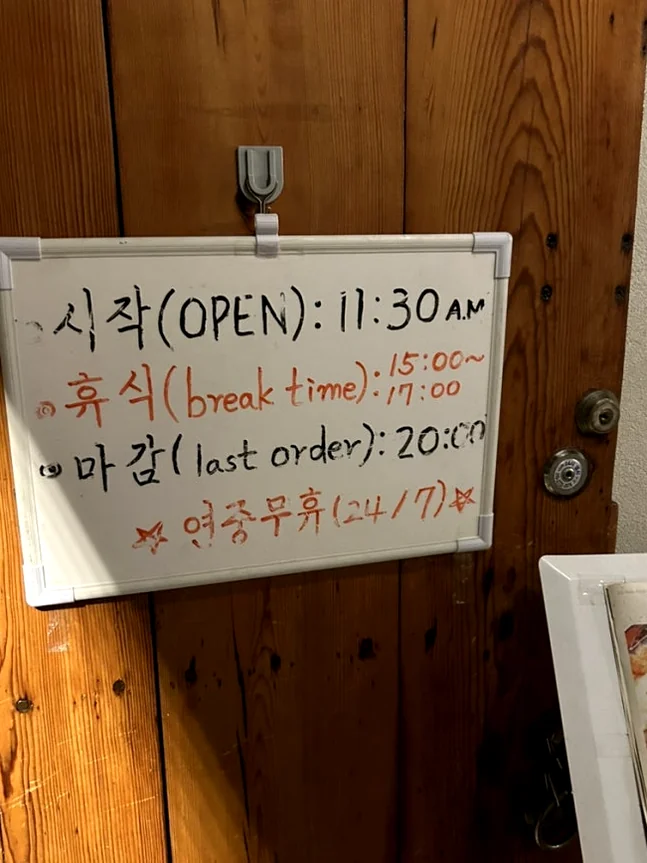 시작(OPEN): 11:30 A.M
◎ 휴식(break time): 15:00~
17:00
◎ 마감(last order): 20:00
☆ 연중무휴(24/7) ☆